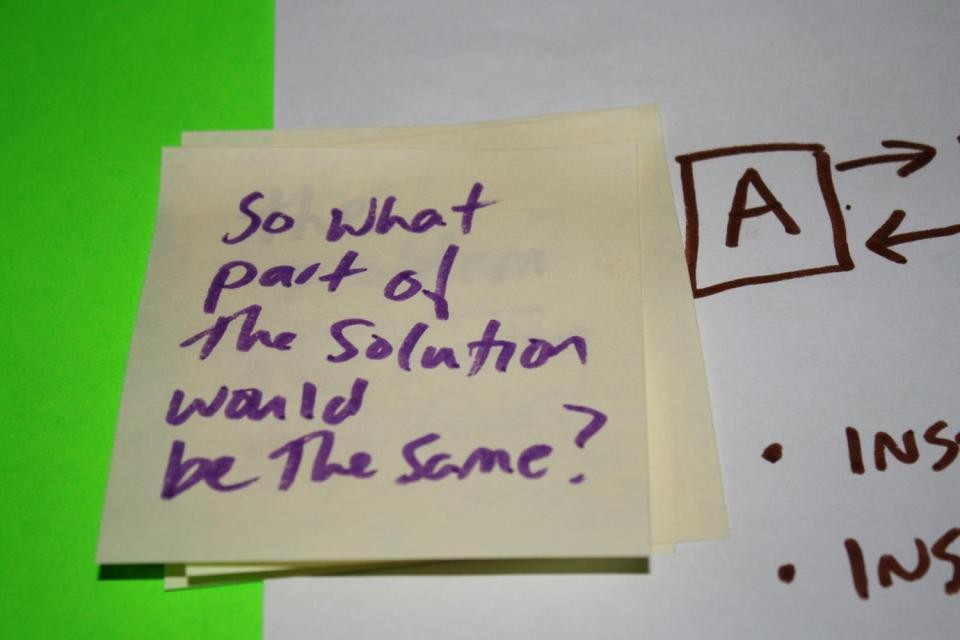 So what
part of
The Solution
would
be The Same?
A
• INS
• INS